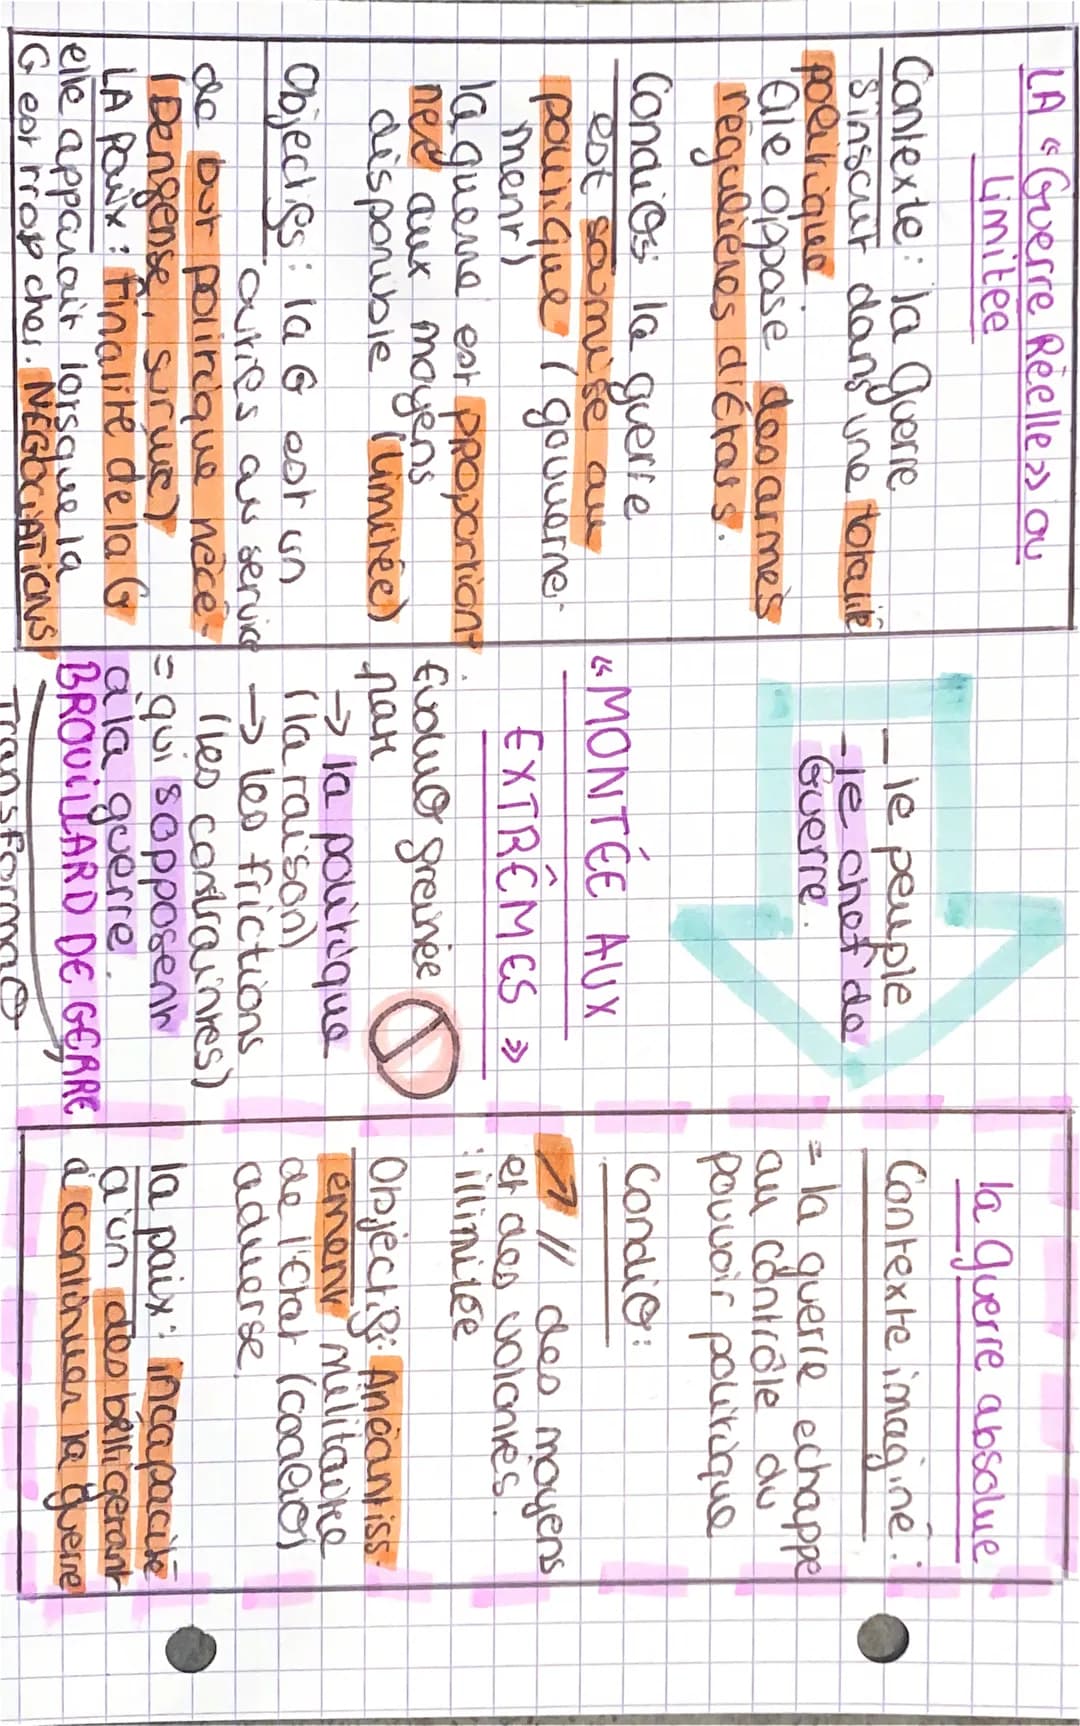 LA « Guerre Réelle » ou
Limitée
Contexte : la Guerre
s'inscrit dans une totalité
politique
Elle oppose des armés
régulières d'États.
Condi⊙s la guerre
est soumise au
politique (gouverne-
ment)
la guerre est proportion
neé aux moyens
disponible (limitée)
Objectifs : la G est un
outils au service
de but politique néce-
(Dengense, situe)
LA Paix : finalité de la G
elle apparait lorsque la
G est trop cher. NÉGOCIATIONS
— le peuple
- le chef de
Guerre.
« MONTÉE AUX
EXTRÊMES »
Évolu⊙ freinée
par
→ la politique
(la raison)
→ les frictions
(les contraintes)
= qui s'opposent
à la guerre.
BROUILLARD DE GERRE
Transforma⊙
la Guerre absolue
Contexte imaginé :
= la guerre echappe
au contrôle du
pouvoir politique
Condi⊙ :
↗ // des moyens
et des volontés.
illimitée
Objectifs : Anéantiss
ement militaire
de l'État (coali⊙)
adverse.
la paix : incapacité
d'un des béligérant
à continuer la guerre